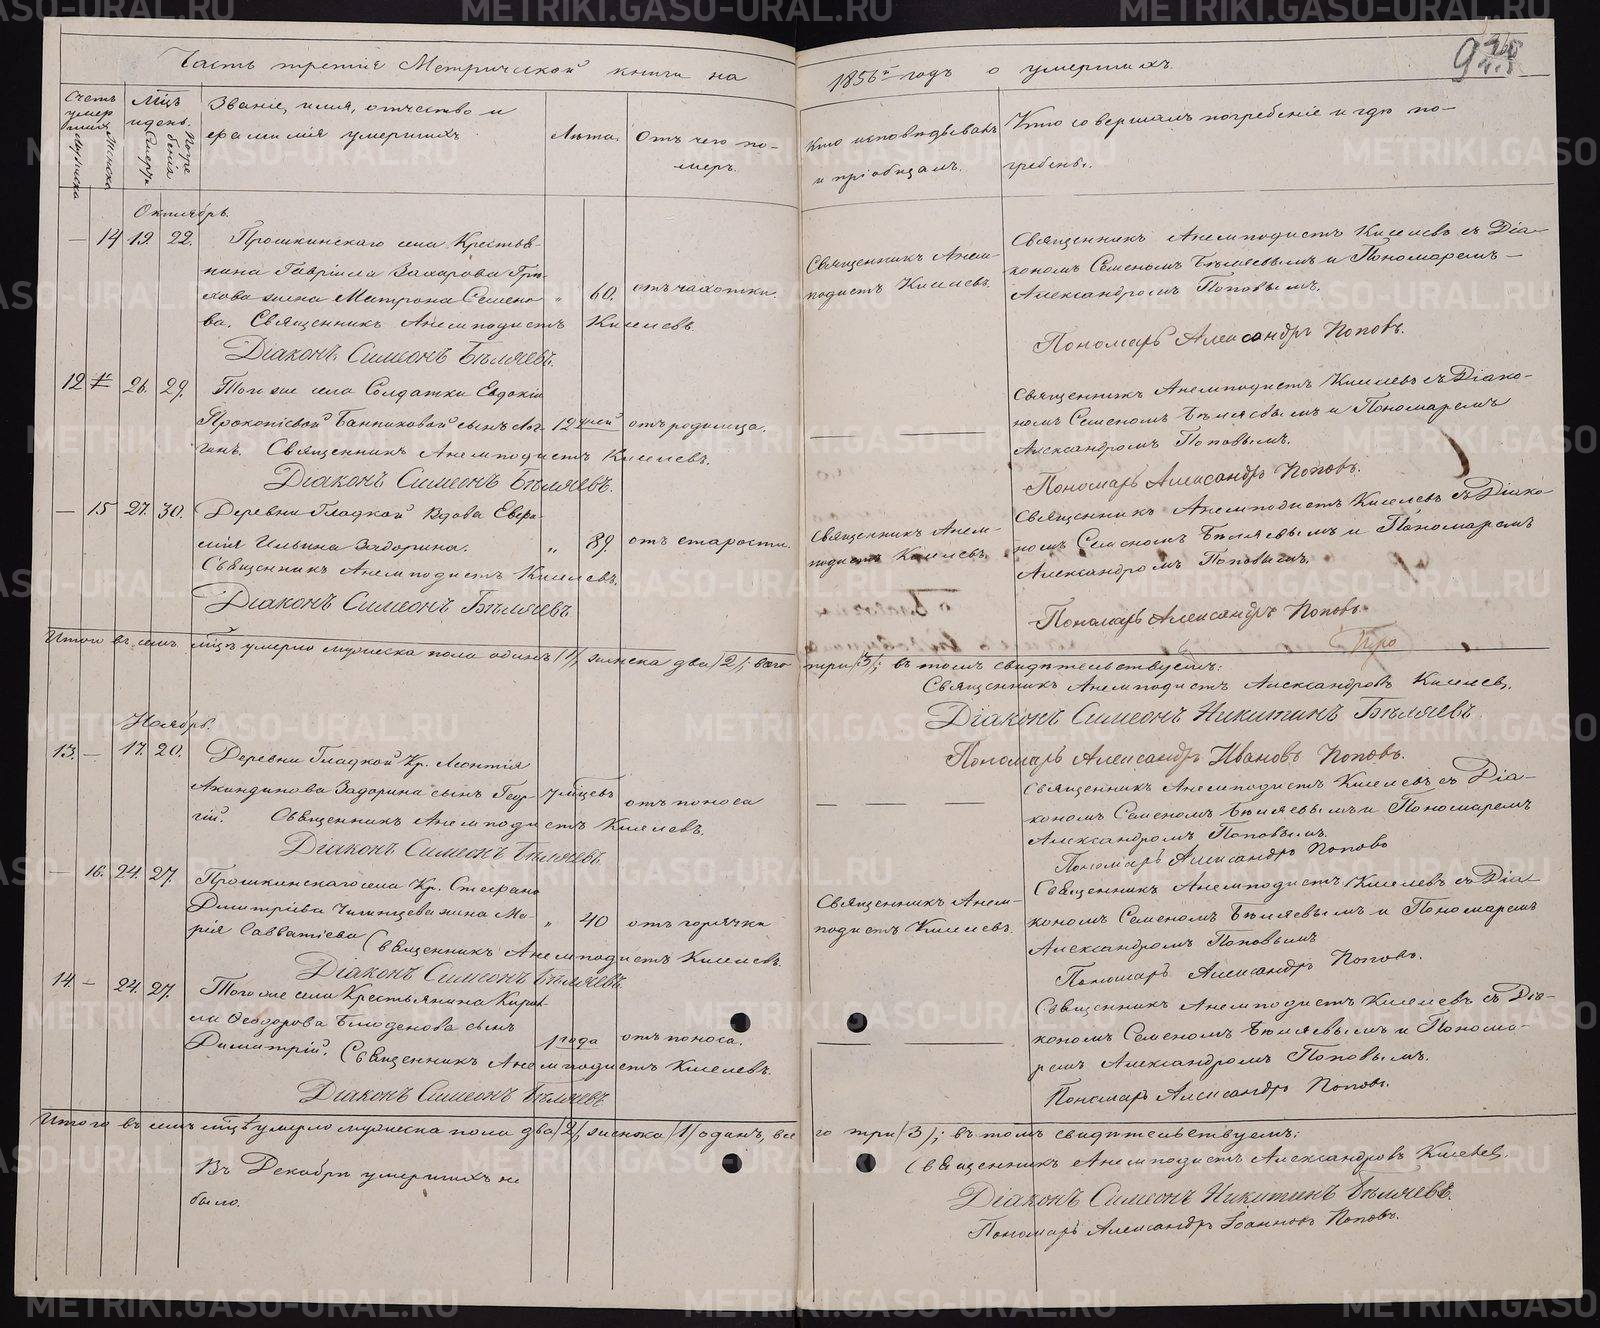 Часть третія Метрической книги на 1856й годъ о умершихъ.
Счетъ умер шихъ
Мужеска
Женска
Мцъ и день.
Смерти
Погре бенія
Званіе, имя, отчество и фамилія умершихъ
Лѣта.
Отъ чего по-
меръ.
Кто исповѣдывалъ
и пріобщалъ.
Кто совершалъ погребеніе и гдѣ по-
гребены.
Октябрь.
— 14 19. 22. Прошкинскаго села Крестья-
нина Гавріила Захарова
жена Матрона Семено- „ 60. отъ чахотки.
ва. Священникъ Анемподистъ Киселевъ
Діаконъ Симеонъ Бѣляевъ.
Священникъ Анем-
подистъ Киселевъ.
Священникъ Анемподистъ Киселевъ съ Діа-
кономъ Семеномъ Бѣляевымъ и Пономаремъ
Александромъ Поповымъ.
Пономарь Александръ Поповъ.
12 26. 29. Того же села Солдатки Евдокіи
Прокопіевой сынъ Лог- 12 дней отъ родимца.
гинъ. Священникъ Анемподистъ Киселевъ.
Діаконъ Симеонъ Бѣляевъ.
— —
Священникъ Анемподистъ Киселевъ съ Діако-
номъ Семеномъ Бѣляевымъ и Пономаремъ
Александромъ Поповымъ.
Пономарь Александръ Поповъ.
— 15 27. 30. Деревни Гладкой Вдова Евфи-
мія Ильина Задорина. „ 89. отъ старости.
Священникъ Анемподистъ Киселевъ.
Діаконъ Симеонъ Бѣляевъ
Священникъ Анем-
подистъ Киселевъ
Священникъ Анемподистъ Киселевъ съ Діако-
номъ Семеномъ Бѣляевымъ и Пономаремъ
Александромъ Поповымъ.
Пономарь Александръ Поповъ
Итого въ семъ мцѣ умерло мужеска пола одинъ /1/, женска два /2/; всего три /3/; въ томъ свидѣтельствуемъ:
Священникъ Анемподистъ Александровъ Киселевъ,
Діаконъ Симеонъ Никитинъ Бѣляевъ
Пономарь Александръ Ивановъ Поповъ.
Ноябрь.
13. — 17. 20. Деревни Гладкой Кр. Леонтія
Акиндинова Задорина сынъ Геор- 7 мцевъ отъ поноса
гій. Священникъ Анемподистъ Киселевъ.
Діаконъ Симеонъ Бѣляевъ
— — —
Священникъ Анемподистъ Киселевъ съ Діа-
кономъ Семеномъ Бѣляевымъ и Пономаремъ
Александромъ Поповымъ.
Пономарь Александръ Поповъ
— 16. 24. 27. Прошкинскаго села Кр. Стефана
Димитріева жена Ма- „ 40 отъ горячки
рія Савватіева Священникъ Анемподистъ Киселевъ.
Діаконъ Симеонъ Бѣляевъ
Священникъ Анем-
подистъ Киселевъ.
Священникъ Анемподистъ Киселевъ съ Діа
кономъ Семеномъ Бѣляевымъ и Пономаремъ
Александромъ Поповымъ
Пономарь Александръ Поповъ.
14. — 24. 27. Того же села Крестьянина Кирил
ла Ѳеодорова сынъ
Димитрій. 1 года отъ поноса.
Священникъ Анемподистъ Киселевъ.
Діаконъ Симеонъ Бѣляевъ
Священникъ Анемподистъ Киселевъ съ Діа-
кономъ Семеномъ Бѣляевымъ и Понома-
ремъ Александромъ Поповымъ.
Пономарь Александръ Поповъ.
Итого въ семъ мцѣ умерло мужеска пола два /2/, женска /1/ одинъ, все го три /3/; въ томъ свидѣтельствуемъ:
Священникъ Анемподистъ Александровъ Киселевъ.
Діаконъ Симеонъ Никитинъ Бѣляевъ.
Пономарь Александръ Іоанновъ Поповъ.
Въ Декабрѣ умершихъ не
было.
METRIKI.GASO-URAL.RU